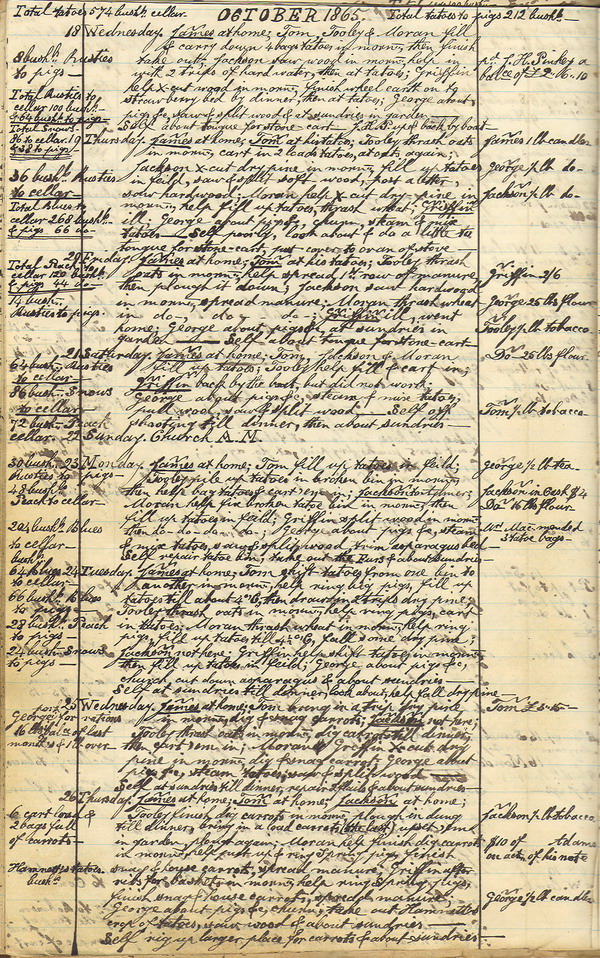 Total tatoes 574 bush.ls cellar. OCTOBER 1865. Total tatoes to pigs 212 bush.ls
18 Wednesday. James at home; Tom, Tooley & Moran fill
& carry down 4 bags tatoes in morn.g, then finish
8 bush.ls Rusties
to pigs —
take out; Jackson saw wood in morn.g, help in
with 2 trips of hard water, then at tatoes; Griffin
help X-cut wood in morn.g, finish wheel earth on to
strawberry bed by dinner, then at tatoes; George about
pigs &c, saw & split wood & at sundries in garden —
Self about tongue for stone-cart — J.R.S. up & back by boat
Total Rusties to
cellar 100 bush.ls
& 64 bush.ls to pigs —
Total Snows
86 to cellar
& 38 to pigs
19 Thursday. James at home; Tom at his tatoes; Tooley thrash oats
in morn.g, cart in 2 loads tatoes, at oats again;
James 1 lb candles
Jackson X-cut dry pine in morn.g, fill up tatoes
in feild, saw & split soft wood, post & after
George ½ lb do-
36 bush.ls Rusties
to cellar —
saw hardwood; Moran help X-cut dry-pine in
morn.g, help fill up tatoes, thrash wheat; Griffin
Jackson ½ lb do-
Total Blues to
cellar 268 bush.ls
& pigs 66 do-
ill; George about pigs &c, churn, steam & mix
tatoes — Self poorly, look about & do a little to
tongue for stone-cart, put cover to oven of stove
20 Friday. James at home; Tom at his tatoes; Tooley thrash
Total Peach to
cellar 120 bush.ls
& pigs 44 do-
oats in morn.g, help spread 1st row of manure
then plough it down; Jackson saw hardwood
Griffin 2/6
14 bush.ls
Rusties to pigs.
in morn.g, spread manure; Moran thrash wheat
in do-, do-, do-; Griffin ill, went
home; George about pigs &c, at sundries in
garden — Self about tongue for stone-cart
George 25 lbs flour
Tooley ½ lb tobacco
21 Saturday. James at home; Tom, Jackson & Moran
fill up tatoes; Tooley help fill & cart in;
Do- 25 lbs flour
64 bush.ls Rusties
to cellar —
Griffin back by the boat, but did not work;
George about pigs &c, steam & mix tatoes,
86 bush.ls Snows
to cellar —
pull wool, saw & split wood — Self off
shooting till dinner, then about sundries —
Tom ½ lb tobacco
72 bush.ls Peach
cellar.
22 Sunday. Church A.M.
30 bush.ls
Rusties to pigs —
23 Monday. James at home; Tom fill up tatoes in feild;
Tooley pile up tatoes in broken bin in morn.g,
George ½ lb tea-
48 bush.ls
Peach to cellar —
then help bag tatoes & cart 'em in; Jackson
Moran help fix broken tatoe bin in morn.g, then
Jackson in Cash $4
Do- 16 lbs flour
202 bush.ls Blues
to cellar —
fill up tatoes in feild; Griffin split wood in morn.g
then do-do-do-do-; George about pigs &c, steam
& mix tatoes, saw & split wood, trim asparagus bed
Self repair tank, take out the Burs & about sundries
Wm Mac mended
3 tatoe bags —
64 Blues
to cellar —
24 Tuesday. James at home; Tom shift tatoes from one bin to
another in morn.g, help ring big pigs, fill up
66 bush.ls Blues
to pigs —
tatoes till about 4 o'C, then draw up 2 trails dry pine;
Tooley thrash oats in morn.g, help ring pigs, cart
28 bush.ls Peach
to pigs —
in tatoes; Moran thrash wheat in morn.g, help ring
pigs, fill up tatoes till 4½ o'C, fall some dry pine;
24 bush.ls Snows
to pigs —
Jackson not here; Griffin help shift tatoes in morn.g
then fill up tatoes in feild; George about pigs &c,
church, cut down asparagus & about sundries —
Self at sundries till dinner, look about, help fall dry pine
25 Wednesday. James at home; Tom bring in a trip dry pine
in morn.g, dig & snag carrots; Jackson not here;
Tom £3-15 —
pork
George for rations
16 lb bal.ce of last
month & 1 lb over
Tooley thrash oats in morn.g, dig carrots till dinner,
then cart 'em in; Moran & Griffin X-cut dry
pine in morn.g, dig & snag carrots; George about
pigs &c, steam tatoes, saw & split wood —
Self at sundries till dinner, repair 2 pails & about sundries
26 Thursday. James at home; Tom at home; Jackson at home;
6 cart loads &
2 bags full
of carrots —
Tooley finish dig carrots in morn.g, plough in dung
till dinner, bring in a load carrots (the last), upset 'em
in garden, plough again; Moran help finish dig carrots
in morn.g, help putt up & ring Spring pigs, finish
Jackson ½ lb tobacco
$10 of Adams
on acct. of his note
Hammetts tatoes
bush.ls
snag & house carrots, spread manure; Griffin after
rods for baskets in morn.g, help ring Spring pigs,
finish snag & house carrots, spread manure;
George about pigs &c, churn, take out Hammetts
crop of tatoes, saw wood & about sundries —
Self rig up larger place for carrots & about sundries —
George ½ lb candles